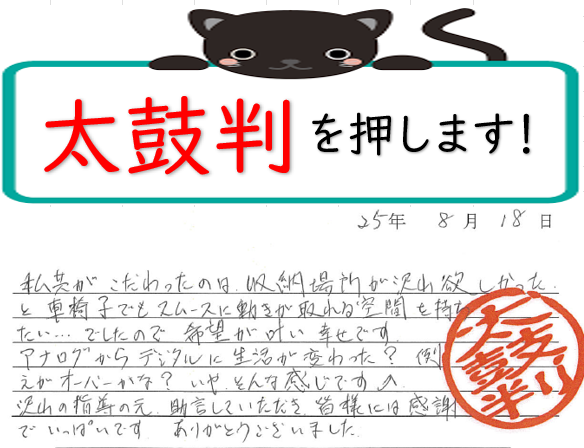 太鼓判を押します!
25年 8月 18日
私共がこだわったのは、収納場所が沢山欲しかった。
と車椅子でもスムースに動きが取れる空間を持ち
たい…でしたので希望が叶い幸せです。
アナログからデジタルに生活が変わった? 例
えがオーバーかな? いや、そんな感じです
沢山の指導の元、助言していただき、皆様には感謝
でいっぱいです ありがとうございました。
太鼓判